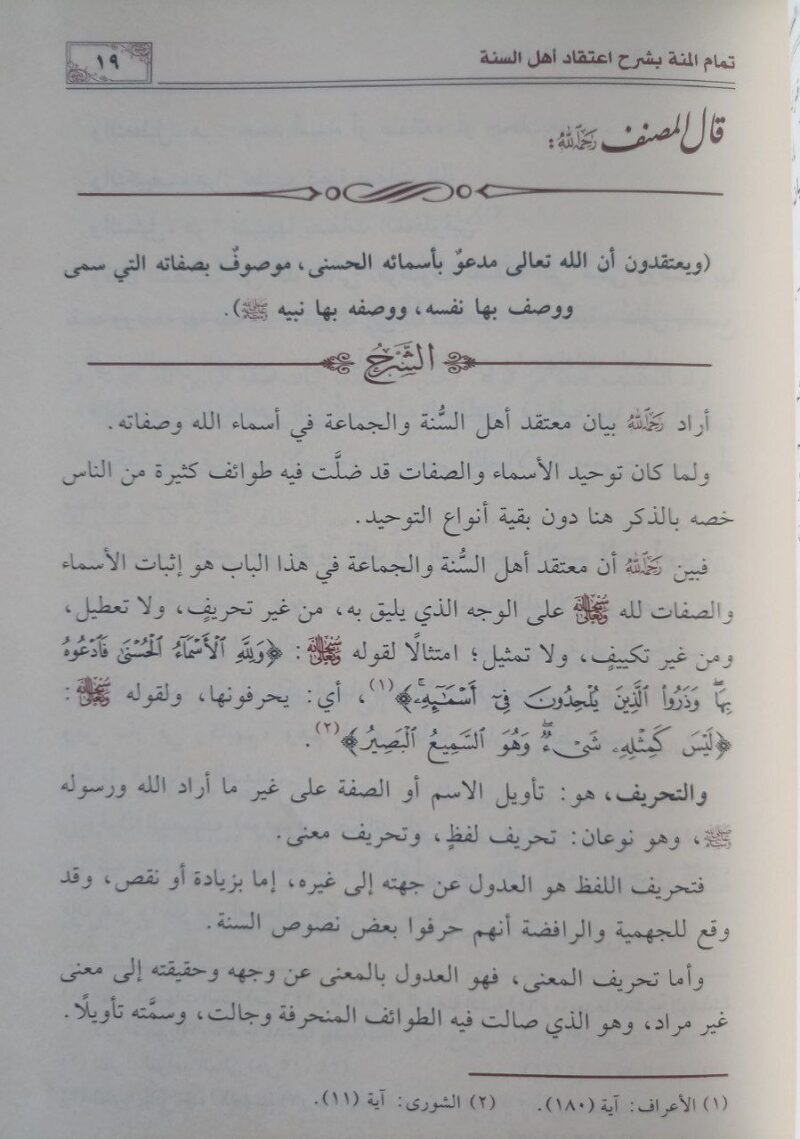 تمام المنة بشرح اعتقاد أهل السنة
١٩
قال المصنف رَحِمَهُ اللهُ:
(ويعتقدون أن الله تعالى مدعوٌ بأسمائه الحسنى، موصوفٌ بصفاته التي سمى
ووصف بها نفسه، ووصفه بها نبيه ﷺ).
الشَّرْحُ
أراد رَحِمَهُ اللهُ بيان معتقد أهل السُّنة والجماعة في أسماء الله وصفاته.
ولما كان توحيد الأسماء والصفات قد ضلَّت فيه طوائف كثيرة من الناس
خصه بالذكر هنا دون بقية أنواع التوحيد.
فبين رَحِمَهُ اللهُ أن معتقد أهل السُّنة والجماعة في هذا الباب هو إثبات الأسماء
والصفات لله سُبْحَانَهُ وَتَعَالَى على الوجه الذي يليق به، من غير تحريفٍ، ولا تعطيل،
ومن غير تكييفٍ، ولا تمثيل؛ امتثالًا لقوله سُبْحَانَهُ وَتَعَالَى: ﴿وَلِلَّهِ ٱلۡأَسۡمَآءُ ٱلۡحُسۡنَىٰ فَٱدۡعُوهُ
بِهَاۖ وَذَرُواْ ٱلَّذِينَ يُلۡحِدُونَ فِيٓ أَسۡمَٰٓئِهِۦۚ﴾(١)، أي: يحرفونها، ولقوله سُبْحَانَهُ وَتَعَالَى:
﴿لَيۡسَ كَمِثۡلِهِۦ شَيۡءٞۖ وَهُوَ ٱلسَّمِيعُ ٱلۡبَصِيرُ﴾(٢).
والتحريف، هو: تأويل الاسم أو الصفة على غير ما أراد الله ورسوله
ﷺ، وهو نوعان: تحريف لفظٍ، وتحريف معنى.
فتحريف اللفظ هو العدول عن جهته إلى غيره، إما بزيادة أو نقص، وقد
وقع للجهمية والرافضة أنهم حرفوا بعض نصوص السنة.
وأما تحريف المعنى، فهو العدول بالمعنى عن وجهه وحقيقته إلى معنى
غير مراد، وهو الذي صالت فيه الطوائف المنحرفة وجالت، وسمَّته تأويلًا.
(١) الأعراف: آية (١٨٠). (٢) الشورى: آية (١١).